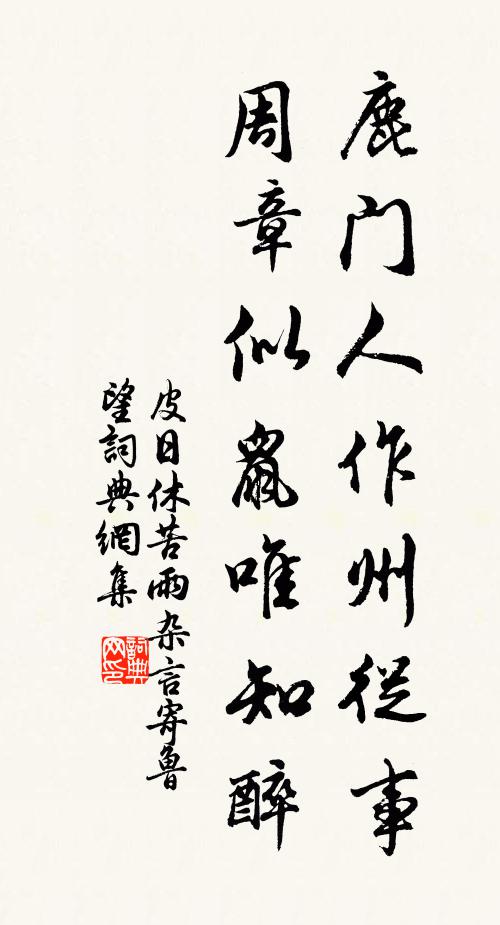 鹿門人作州從事
周章似鼠唯知醉
皮日休苦雨杂言寄魯
望詞典網集
詞典
网印